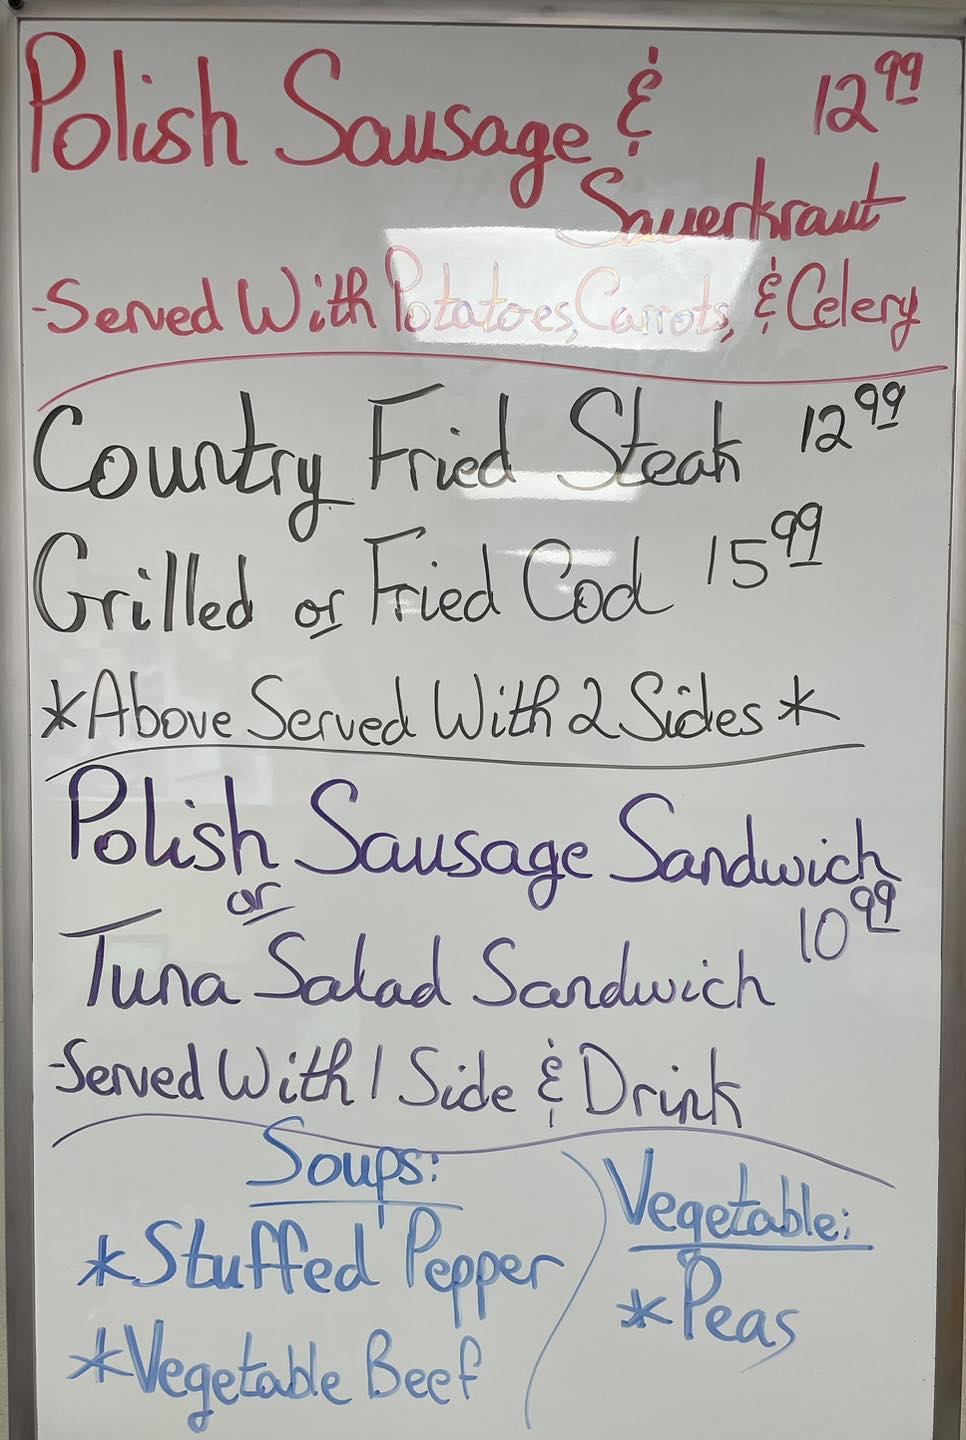 Polish Sausage & 12.99
Sauerkraut
-Served With Potatoes, Carrots, & Celery
Country Fried Steak 12.99
Grilled or Fried Cod 15.99
*Above Served With 2 Sides*
Polish Sausage Sandwich
or
10.99
Tuna Salad Sandwich
-Served With 1 Side & Drink
Soups:
*Stuffed Pepper
*Vegetable Beef
Vegetable:
*Peas